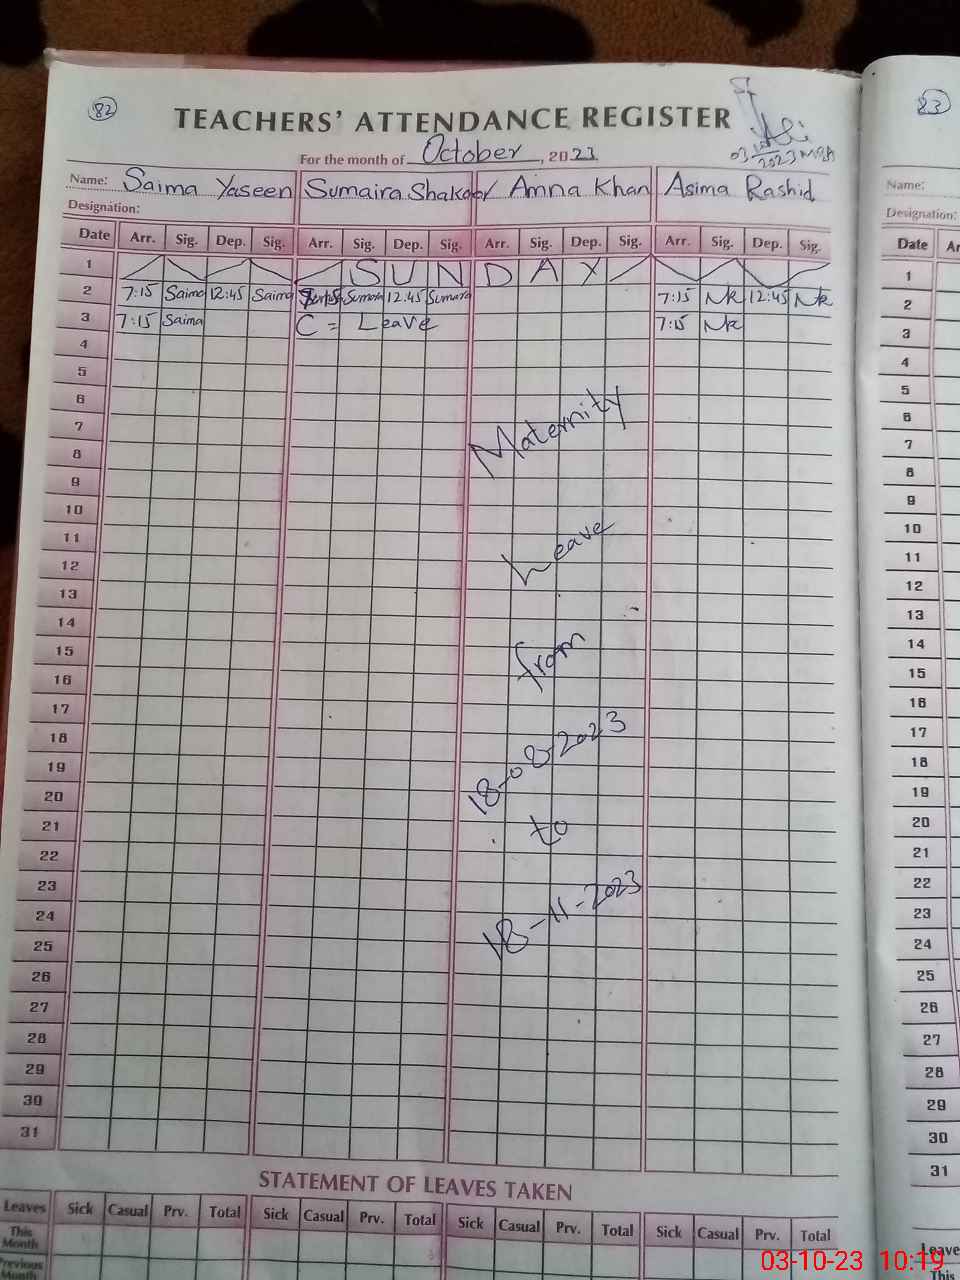 82
TEACHERS' ATTENDANCE REGISTER
For the month of October, 2023
03
2023
Name: Saima Yaseen Sumaira Shakoor Amna Khan Asima Rashid
Designation:
Date Arr. Sig. Dep. Sig. Arr. Sig. Dep. Sig. Arr. Sig. Dep. Sig. Arr. Sig. Dep. Sig.
1 SUNDAY
2 7:15 Saima 12:45 Saima 12:45 7:15 Nk 12:45 Nk
3 7:15 Saima C = Leave 7:15 Nk
4
5
6
7
8
9
10
11
12
13
14
15
16
17
18
19
20
21
22
23
24
25
26
27
28
29
30
31
Maternity
Leave
from
18-08-2023
to
18-11-2023
STATEMENT OF LEAVES TAKEN
Leaves Sick Casual Prv. Total Sick Casual Prv. Total Sick Casual Prv. Total Sick Casual Prv. Total
This
Month
Previous
Month
83
Name:
Designation:
Date
1
2
3
4
5
6
7
8
9
10
11
12
13
14
15
16
17
18
19
20
21
22
23
24
25
26
27
28
29
30
31
Leave
This
03-10-23 10:19